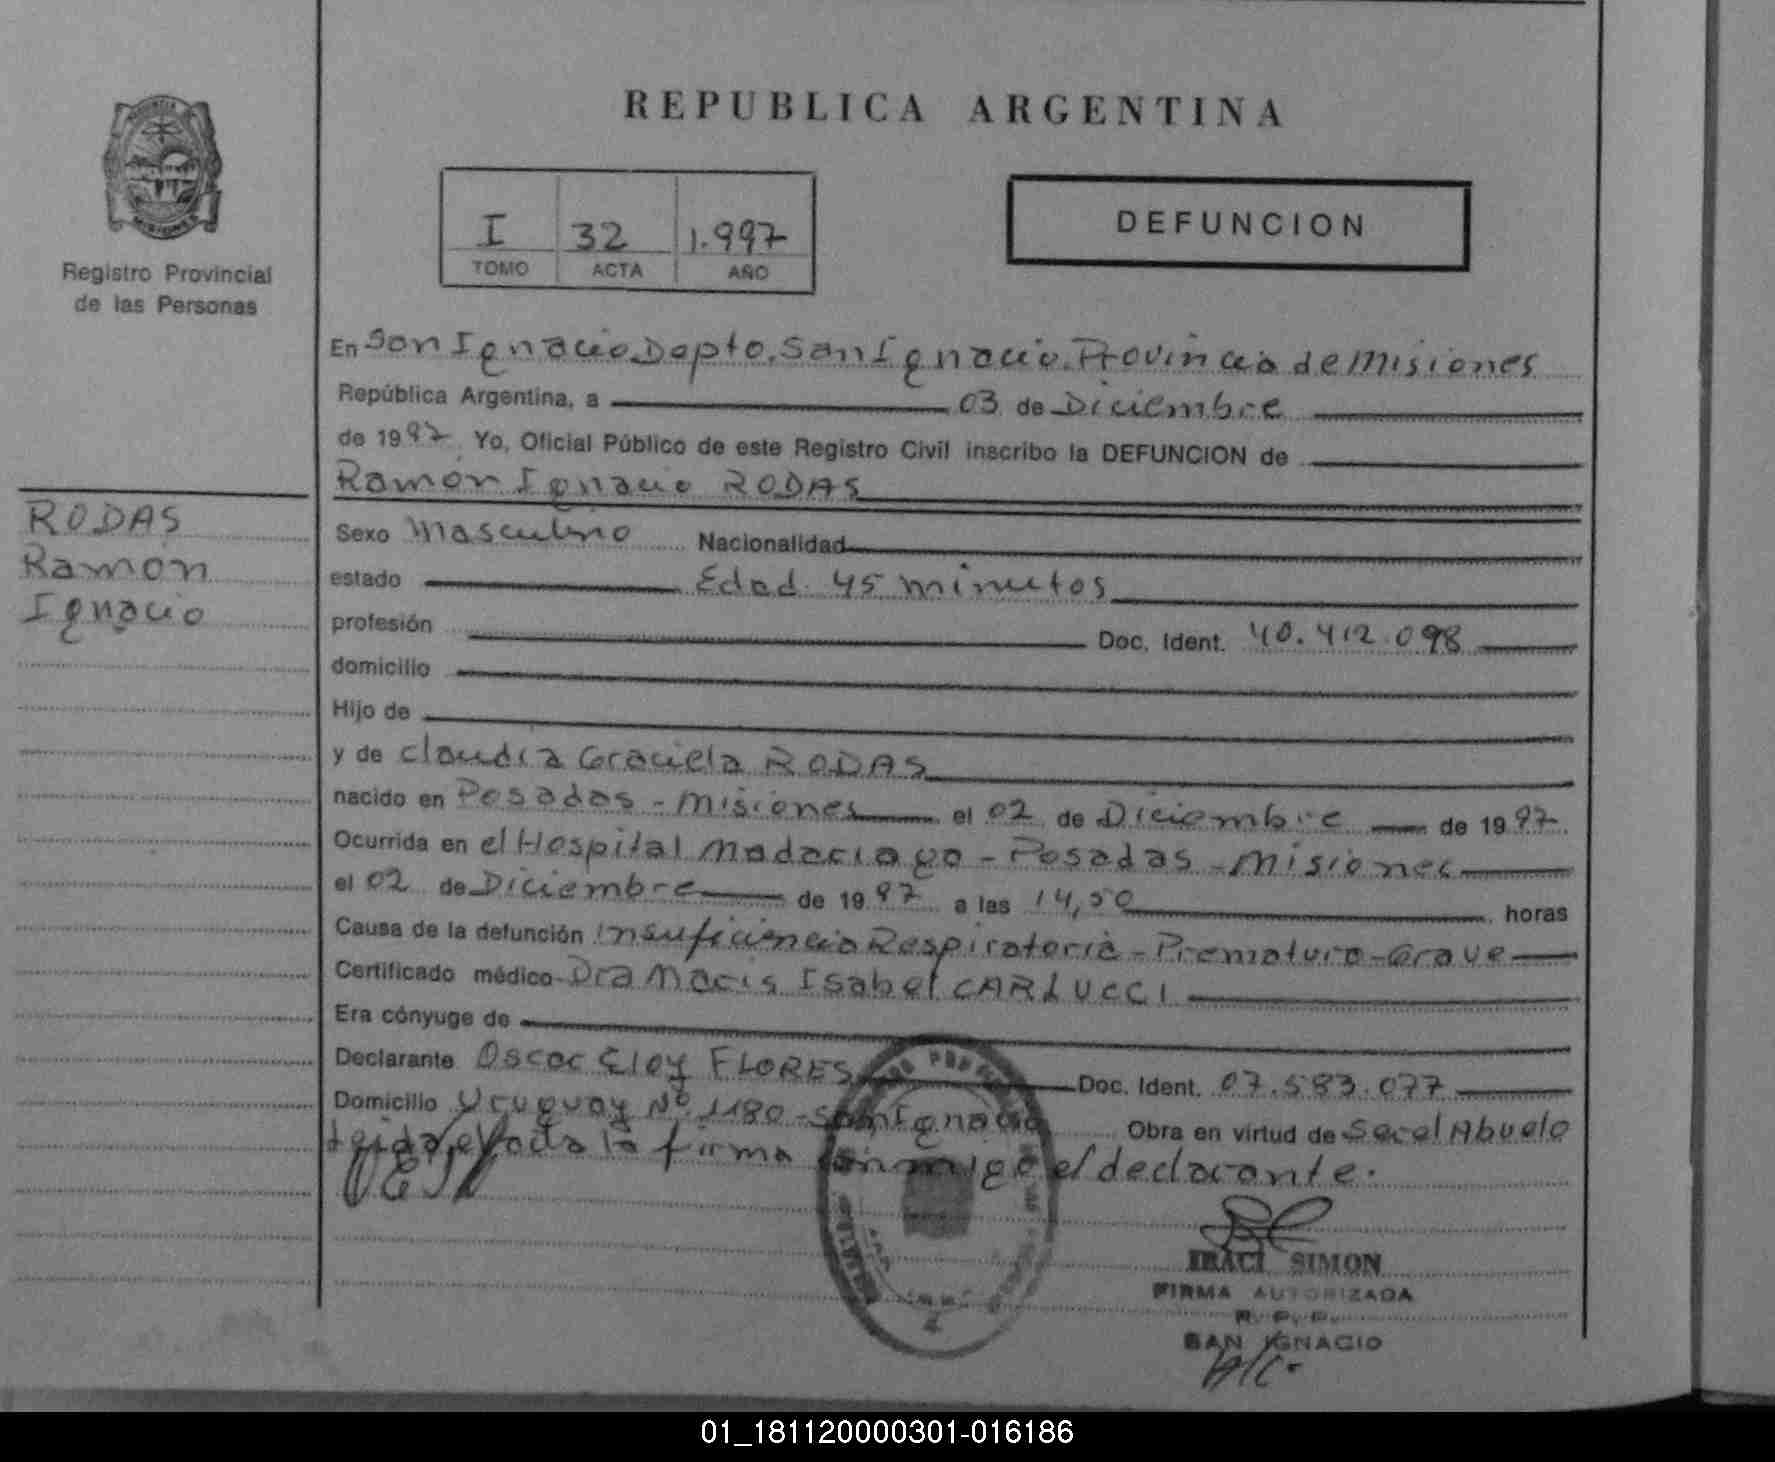 REPUBLICA ARGENTINA
Registro Provincial
de las Personas
I 32 1.997
TOMO ACTA AÑO
DEFUNCION
RODAS
Ramón
Ignacio
En San Ignacio Depto. San Ignacio. Provincia de Misiones
República Argentina, a 03 de Diciembre
de 1997 Yo, Oficial Público de este Registro Civil inscribo la DEFUNCION de
Ramón Ignacio RODAS
Sexo Masculino Nacionalidad
estado Edad 45 minutos
profesión Doc. Ident. 40.412.098
domicilio
Hijo de
y de Claudia Graciela RODAS
nacido en Posadas - Misiones el 02 de Diciembre de 1997
Ocurrida en el Hospital Madariaga - Posadas - Misiones
el 02 de Diciembre de 1997 a las 14,50 horas
Causa de la defunción Insuficiencia Respiratoria - Prematuro - Grave
Certificado médico Dra Maris Isabel CARLUCCI
Era cónyuge de
Declarante Oscar Eloy FLORES Doc. Ident. 07.583.077
Domicilio Uruguay Nº 1180 - San Ignacio Obra en virtud de Ser el Abuelo
Leida el acta la firma conmigo el declarante.
IRACI SIMON
FIRMA AUTORIZADA
R. P. P.
SAN IGNACIO
A/C.
01_181120000301-016186